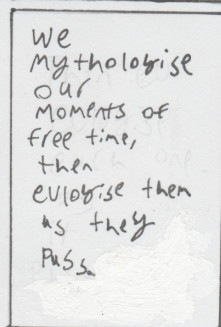 we
mythologise
our
moments of
free time,
then
eulogise them
as they
pass.